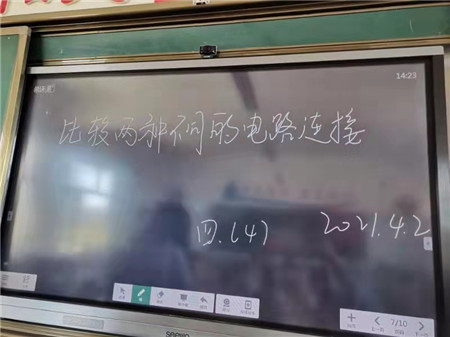 14:23
比较两种不同的电路连接
四.(4) 2021.4.2
7/10